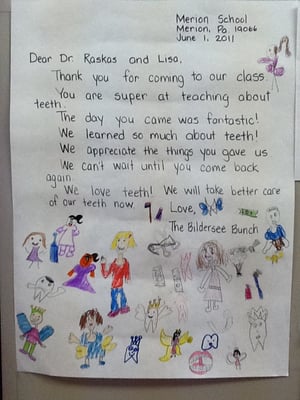 Merion School
Merion, Pa. 19066
June 1, 2011
Dear Dr. Raskas and Lisa,
Thank you for coming to our class.
You are super at teaching about
teeth.
The day you came was fantastic!
We learned so much about teeth!
We appreciate the things you gave us
We can't wait until you come back
again.
We love teeth! We will take better care
of our teeth now.
Love,
The Bildersee Bunch